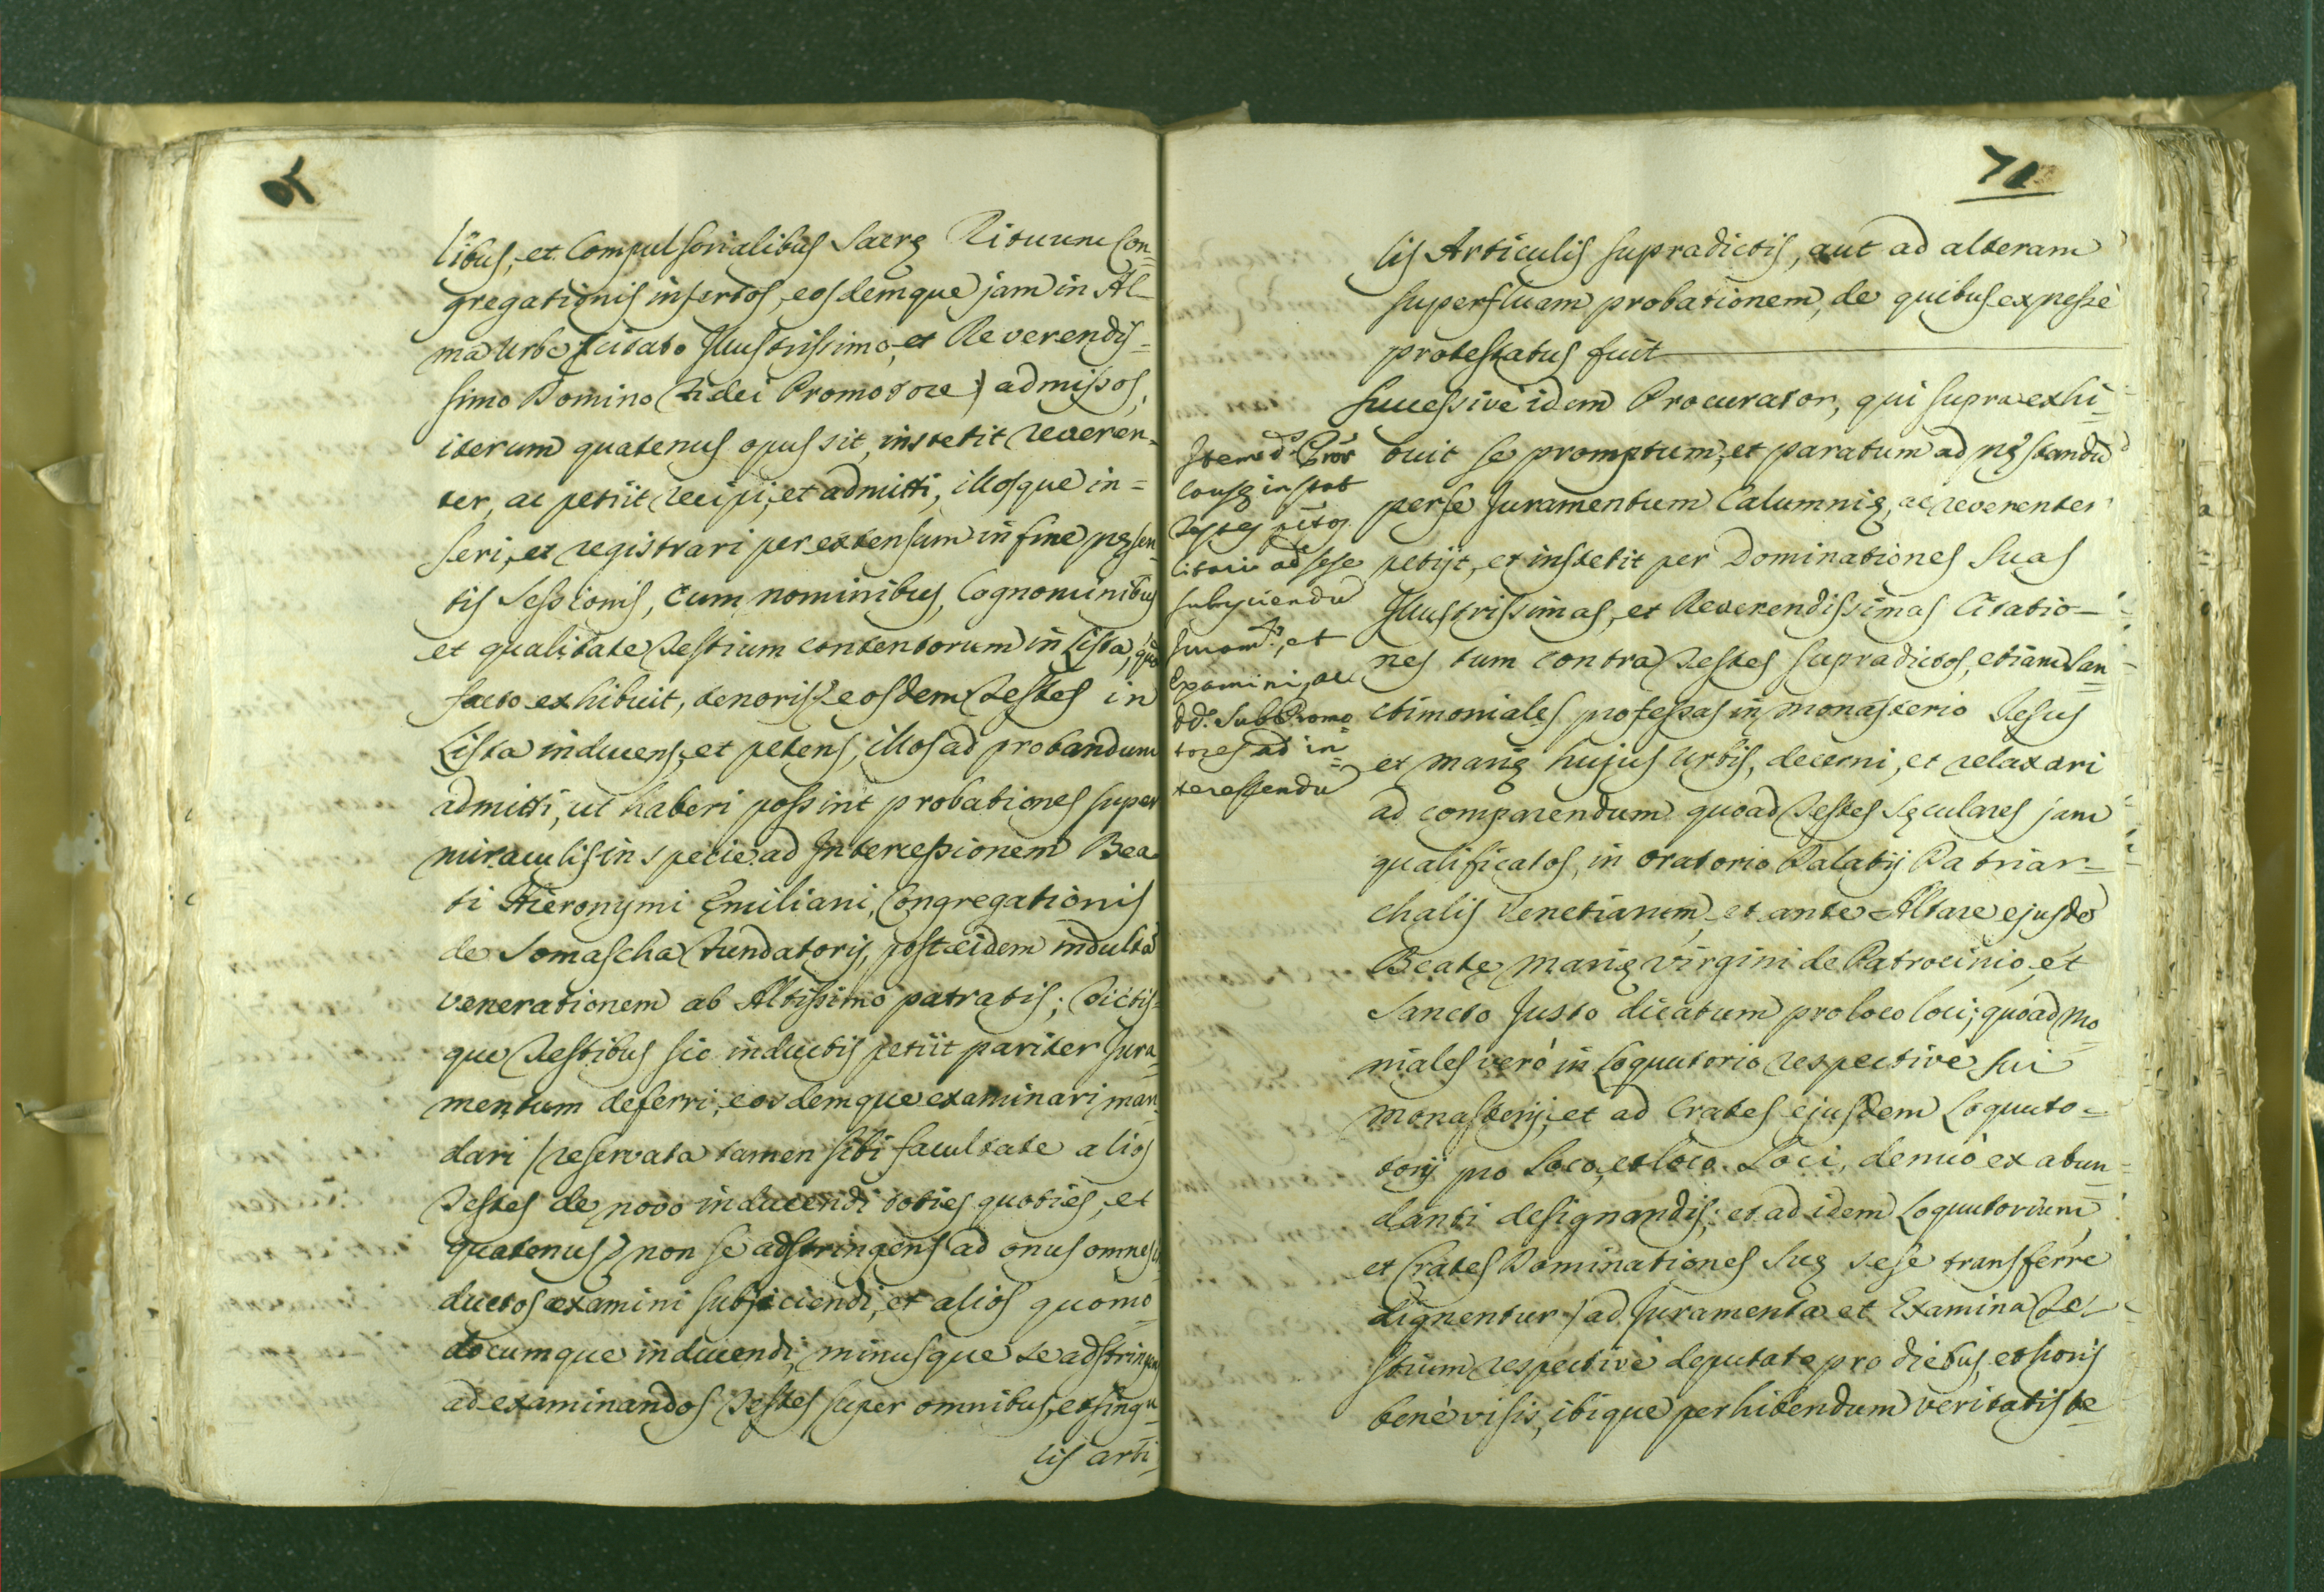 70
libus, et Compulsorialibus Sacrę Rituum Con=
gregationis insertos, eosdemque jam in Al=
ma Urbe (citato Illustrissimo, et Reverendis=
simo Domino Fidei Promotore) admissos,
iterum quatenus opus sit, institit reveren=
ter, ac petiit recipi, et admitti, illosque in=
seri, et registrari per extensum in fine pręsen=
tis Sessionis, cum nominibus, Cognominibus
et qualitate Testium contentorum in Lista, quã
facto exhibuit, tenoris &. eosdem Testes in
Lista inducens, et petens, illos ad probandum
admitti, ut haberi possint probationes super
miraculis in specie ad Intercessionem Bea
ti Hieronymi Ęmiliani, Congregationis
de Somascha Fundatoris, post eidem indultã
venerationem ab Altissimo patratis; Dictis=
que Testibus sic inductis petiit pariter Jura=
mentum deferri, eosdemque examinari man=
dari (reservata tamen sibi facultate alios
Testes de novo inducendi toties quoties, et
quatenus &) non se adstringens ad onus omnes
ductos examini subjiciendi, et alios quomo=
documque inducendi, minusque se adstringens
ad examinandos Testes super omnibus, et singu=
lis arti=
71
lis Articulis supradictis, aut ad alteram
superfluam probationem, de quibus expressè
protestatus fuit
Successivè idem Procurator, qui supra exhi=
buit se promptum, et paratum ad pręstandũ
per se Juramentum Calumnię, ac reverenter
petijt, et institit per Dominationes Suas
Illustrissimas, et Reverendissimas Citatio=
nes tum contra Testes supradictos, etiam San=
ctimoniales professas in monasterio Jesus
et Marię hujus Urbis, decerni, et relaxari
ad comparendum quoad Testes Sęculares jam
qualificatos, in Oratorio Palatij Patriar=
chalis Venetiarum, et ante Altare ejusdẽ
Beatę Marię Virgini de Patrocinio, et
Sancto Justo dicatum pro loco loci; quoad Mo=
niales verò in Loquutorio respectivè sui
Monasterij, et ad Crates ejusdem Loquuto=
torij pro Loco, et loco Loci, denuò ex abun=
danti designandis; et ad idem Loquutorium,
et Crates Dominationes Suę sese transferre
dignentur) ad Juramenta et Examina Te=
stium respectivè deputatę pro diebus, et horis
benè visis, ibique perhibendum veritatis te
Item dˢ. Prõr
Causę instat
Testes pñtos
Citari ad sese
subijciendũ
Juramᵗᵒ, et
Examini, ac
DD. SubPromo
tores ad in=
teressendũ